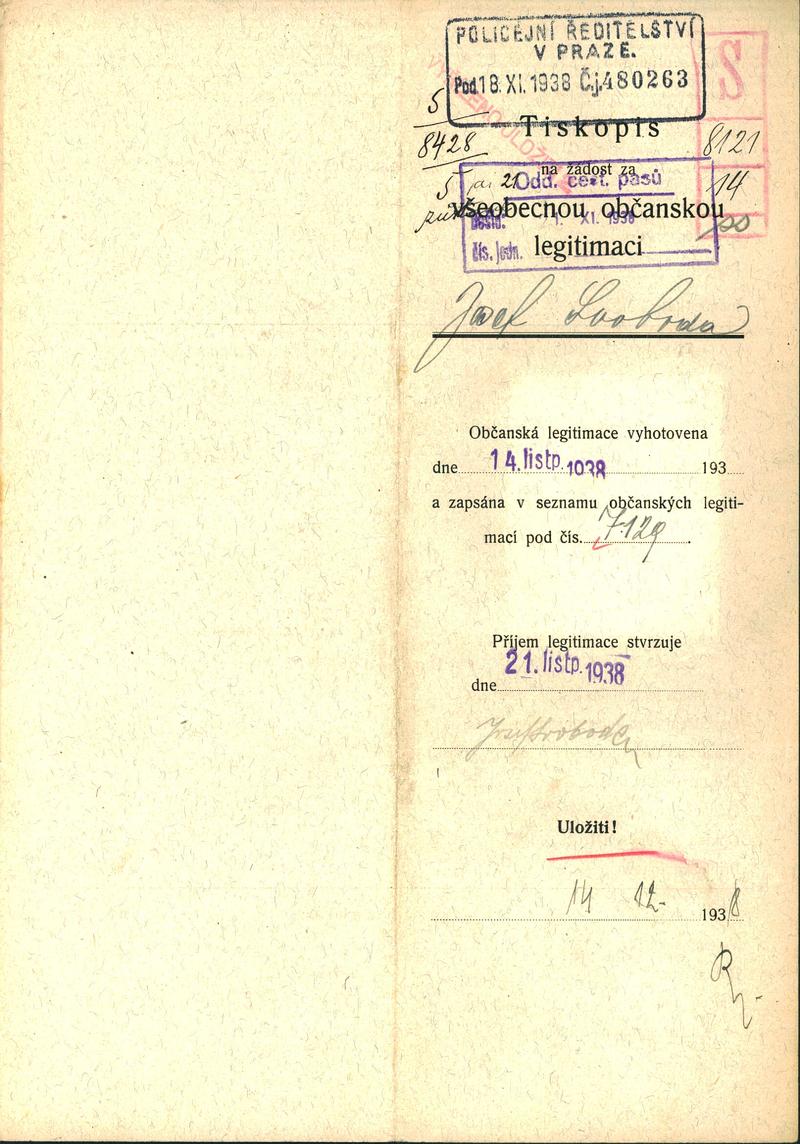 POLICEJNÍ ŘEDITELSTVÍ
V PRAZE.
Pod 18. XI. 1938 Č.j. 480263
S
5
8428
Tiskopis
8121
na žádost za
5
21 Odd. cest. pasů
14
všeobecnou občanskou
XI. 1938
čís. jedn.
legitimaci
Josef Svoboda
Občanská legitimace vyhotovena
dne 14. listp. 1938 193
a zapsána v seznamu občanských legiti-
mací pod čís. 7129
Příjem legitimace stvrzuje
dne 21. listp. 1938
Josef Svoboda
Uložiti!
14 12. 1938